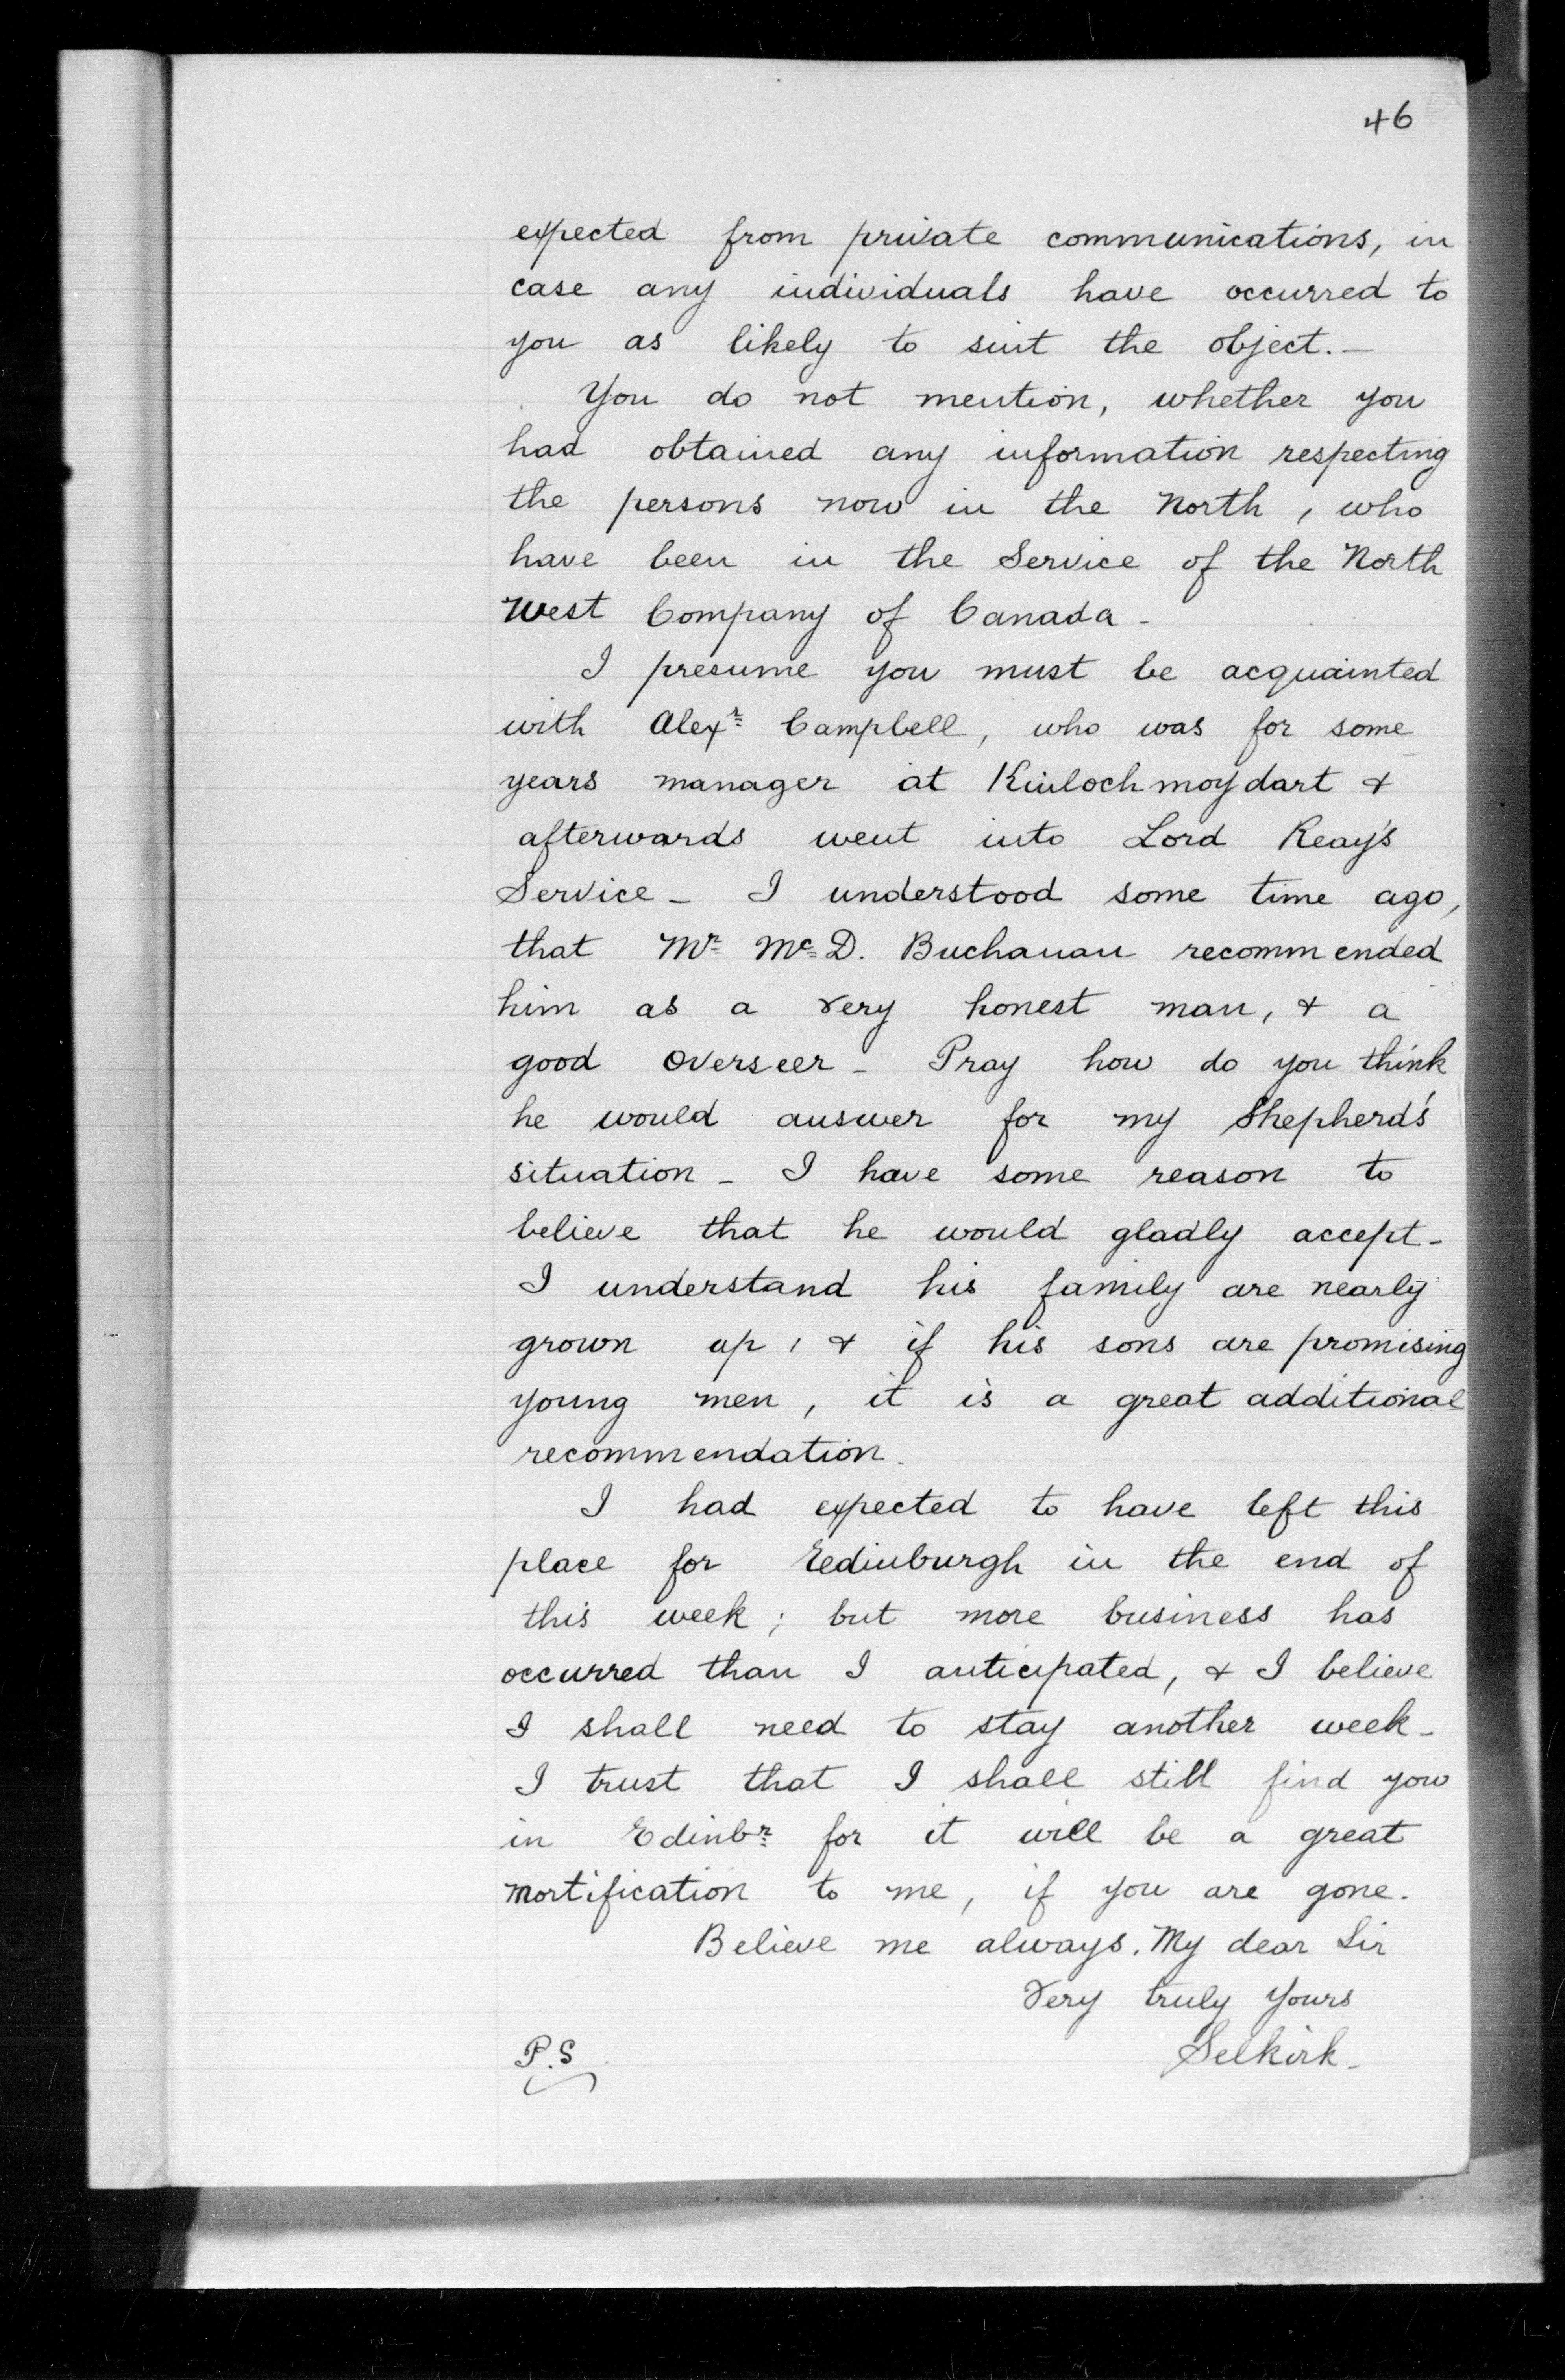 46
expected from private communications, in
case any individuals have occurred to
you as likely to suit the object. —
You do not mention, whether you
had obtained any information respecting
the persons now in the North, who
have been in the Service of the North
West Company of Canada -
I presume you must be acquainted
with Alexr Campbell, who was for some
years manager at Kinloch moydart &
afterwards went into Lord Reay's
Service - I understood some time ago,
that Mr McD. Buchanan recommended
him as a very honest man, & a
good overseer - Pray how do you think
he would answer for my Shepherd's
situation - I have some reason to
believe that he would gladly accept -
I understand his family are nearly
grown up, & if his sons are promising
young men, it is a great additional
recommendation.
I had expected to have left this
place for Edinburgh in the end of
this week; but more business has
occurred than I anticipated, & I believe
I shall need to stay another week -
I trust that I shall still find you
in Edinbr for it will be a great
mortification to me, if you are gone.
Believe me always. My dear Sir
Very truly Yours
Selkirk -
P.S